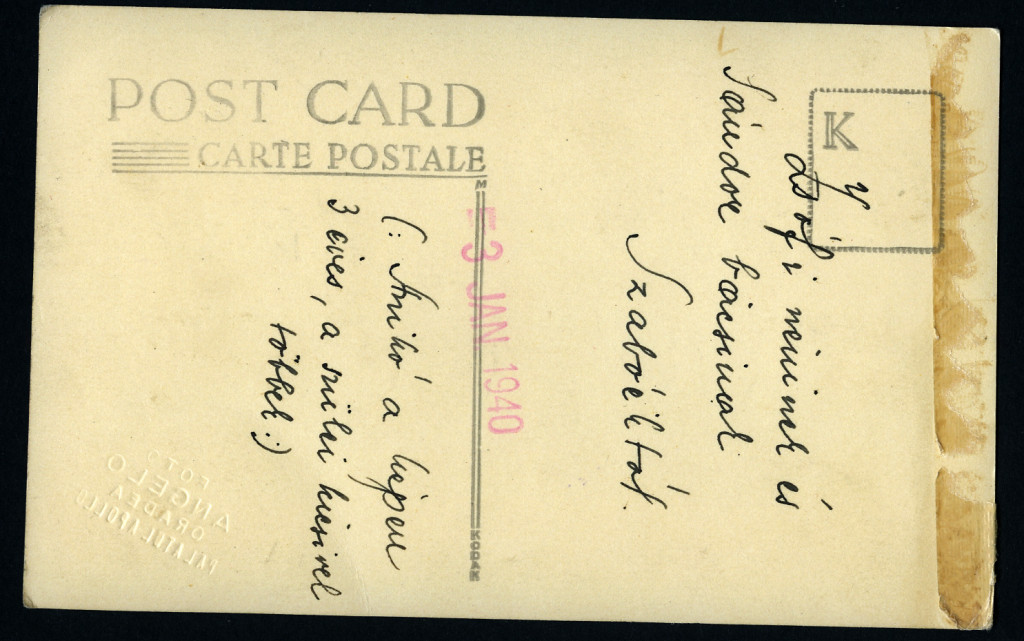 POST CARD
CARTE POSTALE
K
M
Zsófi néninek és
Sándor bácsinak
Szabóéktól.
3 JAN 1940
(: Anikó a képen
3 éves, a szülei kicsivel
többek :)
KODAK
FOTO
ANGELO
ORADEA
PALATUL APOLLO